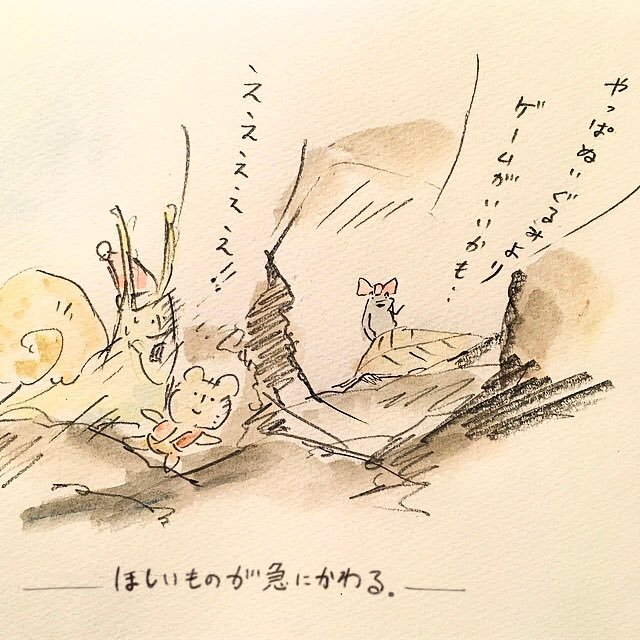 やっぱぬいぐるみより
ゲームがいいかも…
えええええ!!
ほしいものが急にかわる。